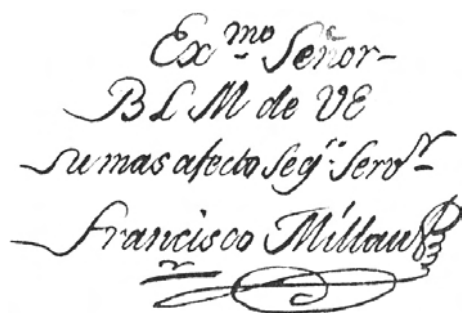 Exmo Señor
B L M de VE
su mas afecto Segr Servr
Francisco Millau